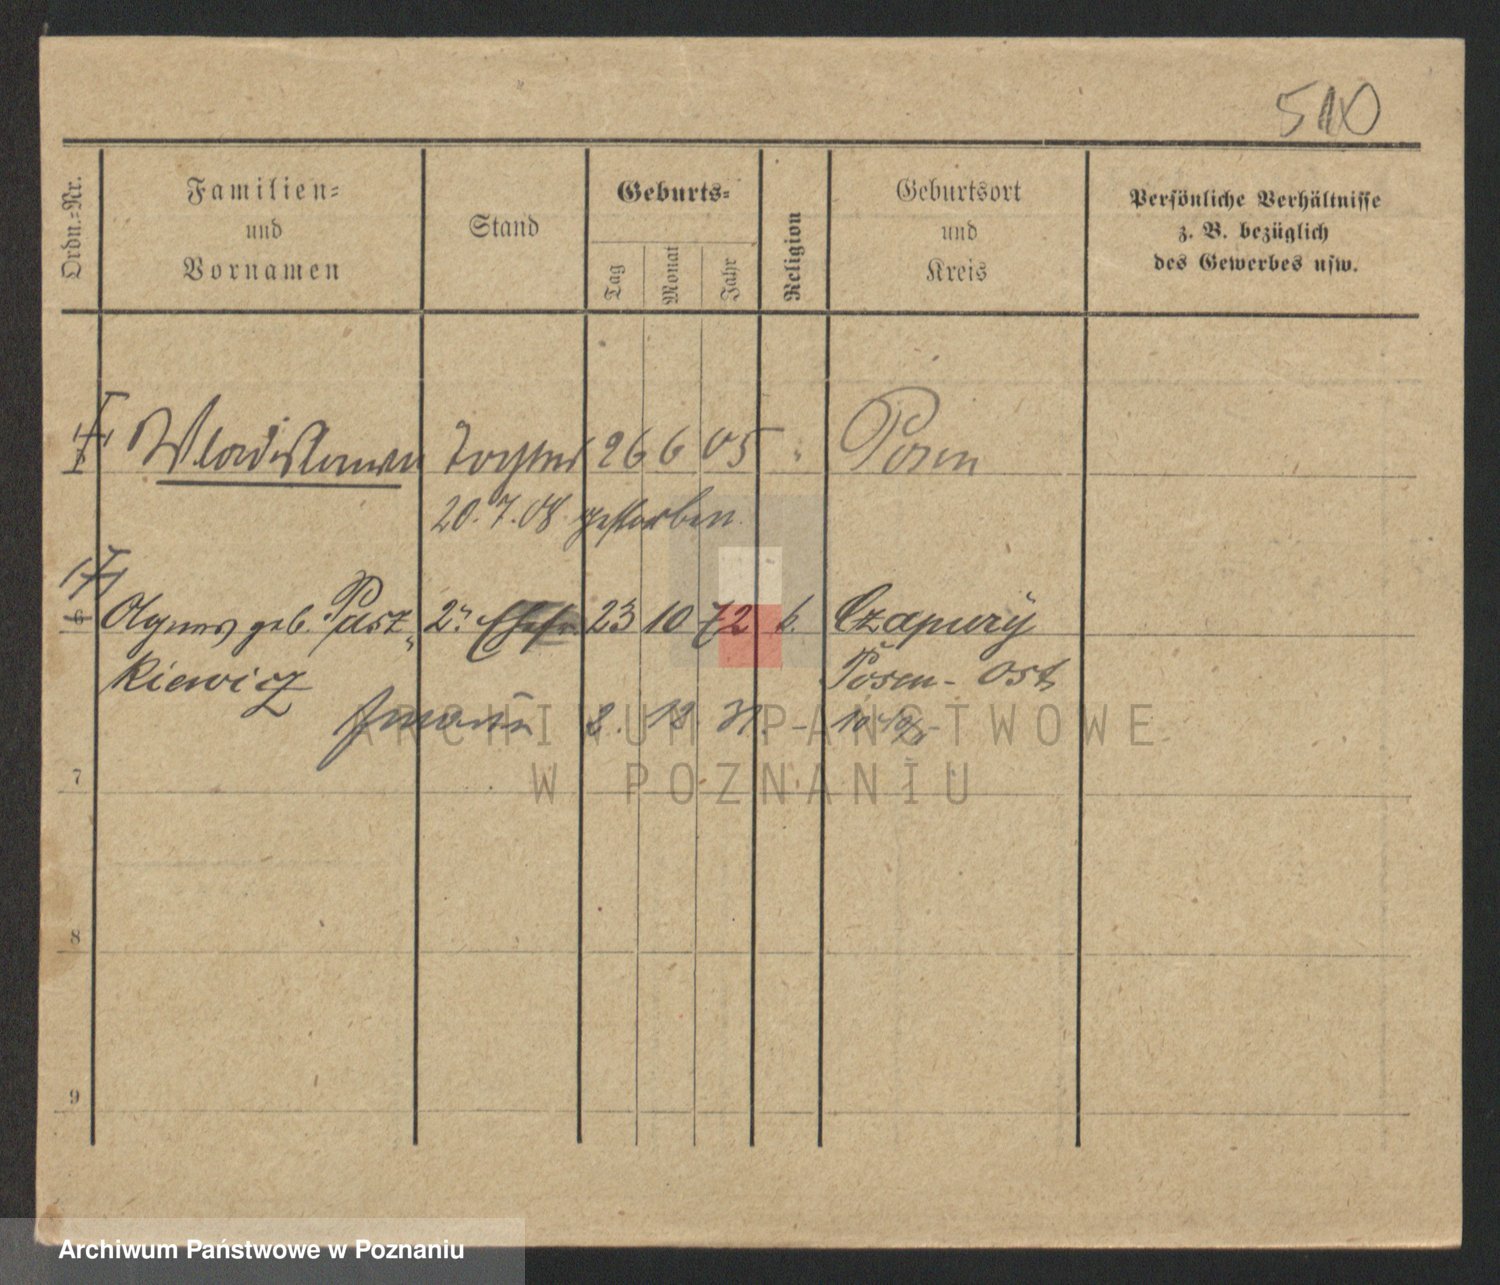 510
Ordn.=Nr.
Familien=
und
Vornamen
Stand
Geburts=
Tag
Monat
Jahr
Religion
Geburtsort
und
Kreis
Persönliche Verhältnisse
z. B. bezüglich
des Gewerbes usw.
Wladislawa Tochter 26 6 05 " Posen
20.7.08 gestorben
Agnes geb. Pasz= 2te Ehefr 23 10 72 k. Czapury
kiewicz Posen-Ost
2. 12. 31.
ARCHIWUM PAŃSTWOWE
W POZNANIU
7
8
9
Archiwum Państwowe w Poznaniu